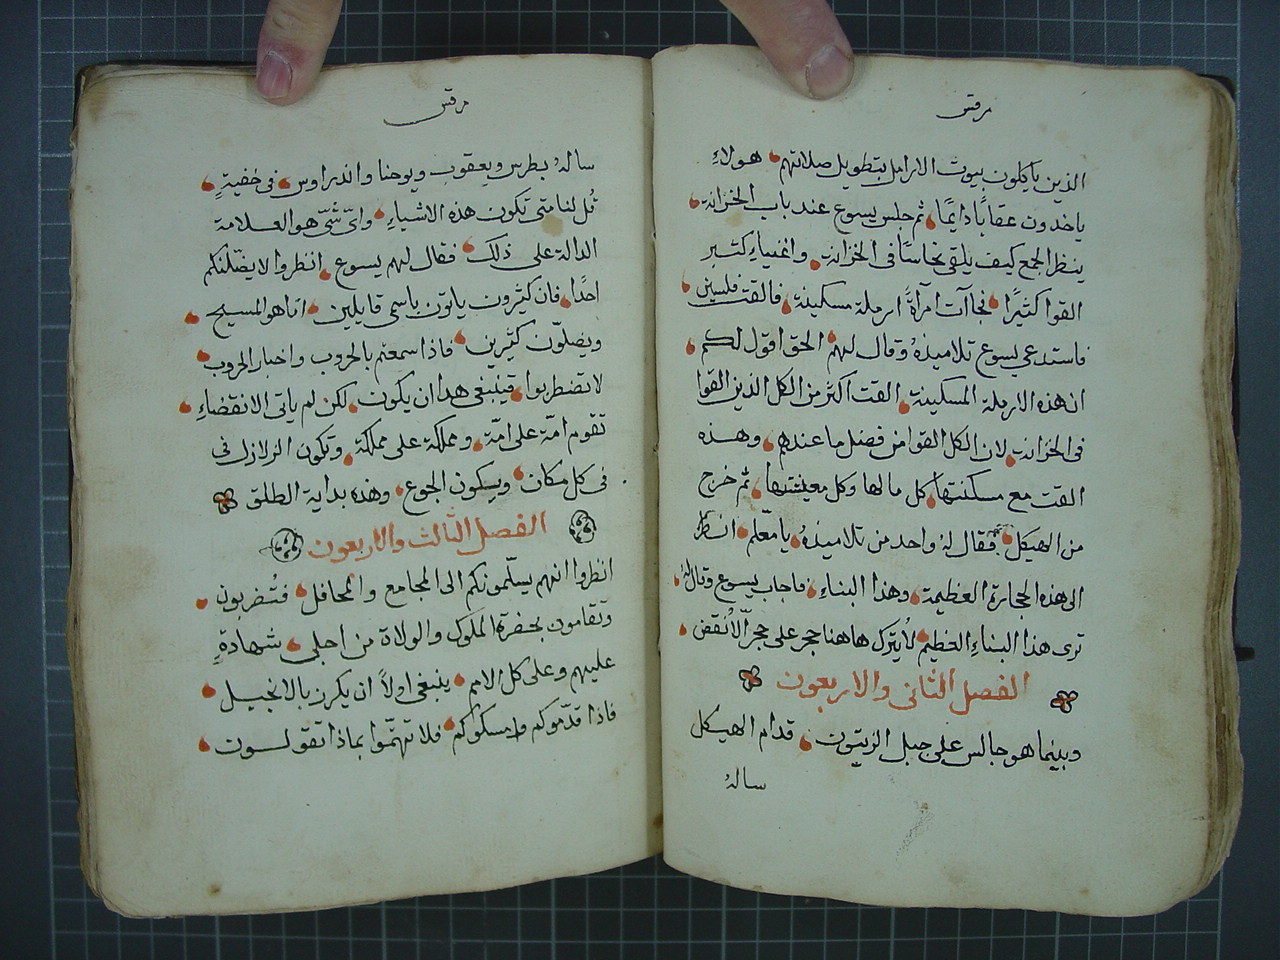 مرقس
الذين ياكلون بيوت الارامل بتطويل صلاتهم هولاء
ياخدون عقابًا دايمًا ثم جلس يسوع عند باب الخزانة
ينظر الجمع كيف يلقي نحاسًا في الخزانة واغنياء كثير
القوا كثيرًا فجاآت امرآةً ارملة مسكينة فالقت فلسين
فاستدعي يسوع تلاميذهُ وقال لهم الحق اقول لكم
ان هذه الارملة المسكينة القت اكثر من الكل الذين القوا
في الخزانة لان الكل القوا من فضل ما عندهم وهذه
القت مع مسكنتها كل مالها وكل معيشتها ثم خرج
من الهيكل فقال لهُ واحد من تلاميذهُ يا معلم انظر
الى هذه الحجارة العظيمة وهذا البناء فاجاب يسوع وقال لهُ
ترى هذا البناء العظيم لا يترك هاهنا حجر على حجر الّا نُقض
الفصل الثاني والاربعون
وبينما هو جالس على جبل الزيتون قدام الهيكل
سالهُ
مرقس
سالهُ بطرس ويعقوب ويوحنا واندراوس في خفيةٍ
قُل لنا متى تكون هذه الاشياء وايّ شيً هو العلامة
الدالة على ذلك فقال لهم يسوع انظروا لا يضّلنكم
احدًا فان كثيرون ياتون باسمي قايلين انا هو المسيح
ويضلّون كثيرين فاذا سمعتم بالحروب واخبار الحروب
لا تضطربوا فينبغي هدا ان يكون لكن لم ياتي الانقضاء
تقوم امّة على امّة ومملكة على مملكة وتكون الزلازل في
في كل مكان ويكون الجوع وهذه بداية الطلق
الفصل الثالث والاربعون
انظروا انهم يسلّمونكم الى المجامع والمحافل فتُضربون
وتقامون بحضرة الملوك والولاة من اجلي شهادةٍ
عليهم وعلى كل الامم ينبغي اولاً ان يكرز بالانجيل
فاذا قدّموكم وامسكوكم فلا تهتمّوا بماذا تقولون